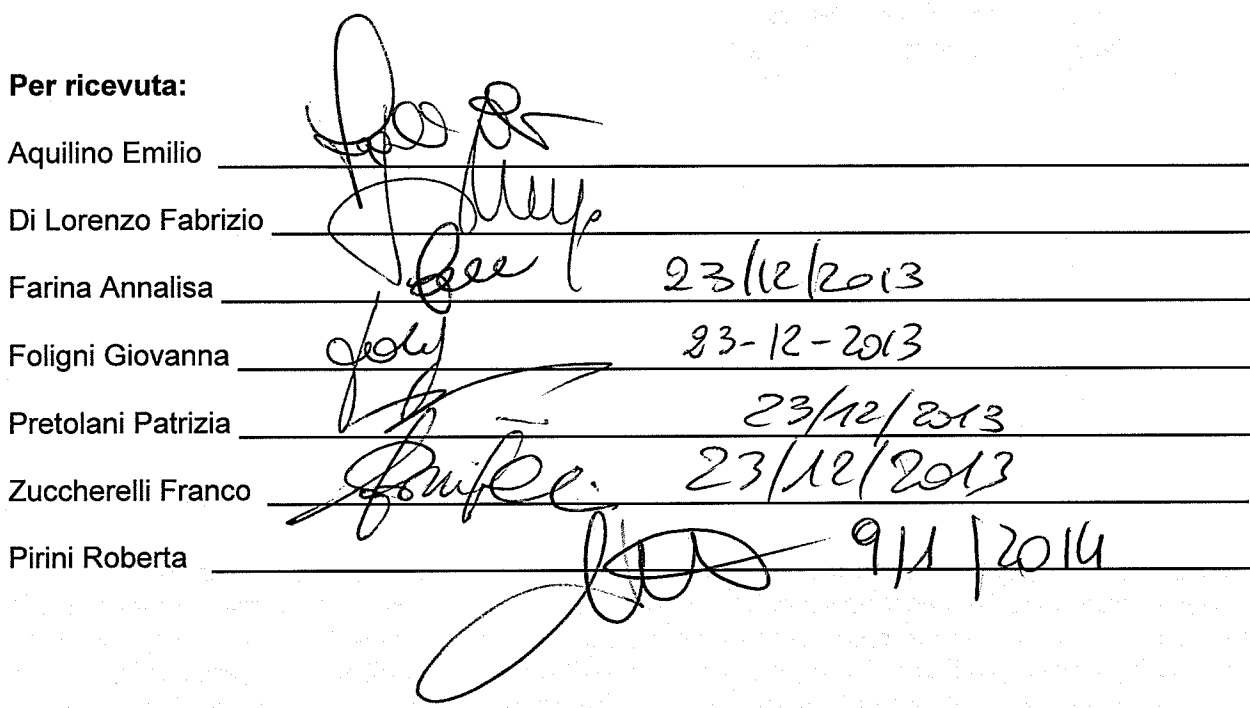 Per ricevuta:
Aquilino Emilio
Di Lorenzo Fabrizio
Farina Annalisa 23/12/2013
Foligni Giovanna 23-12-2013
Pretolani Patrizia 23/12/2013
Zuccherelli Franco 23/12/2013
Pirini Roberta 9/1/2014